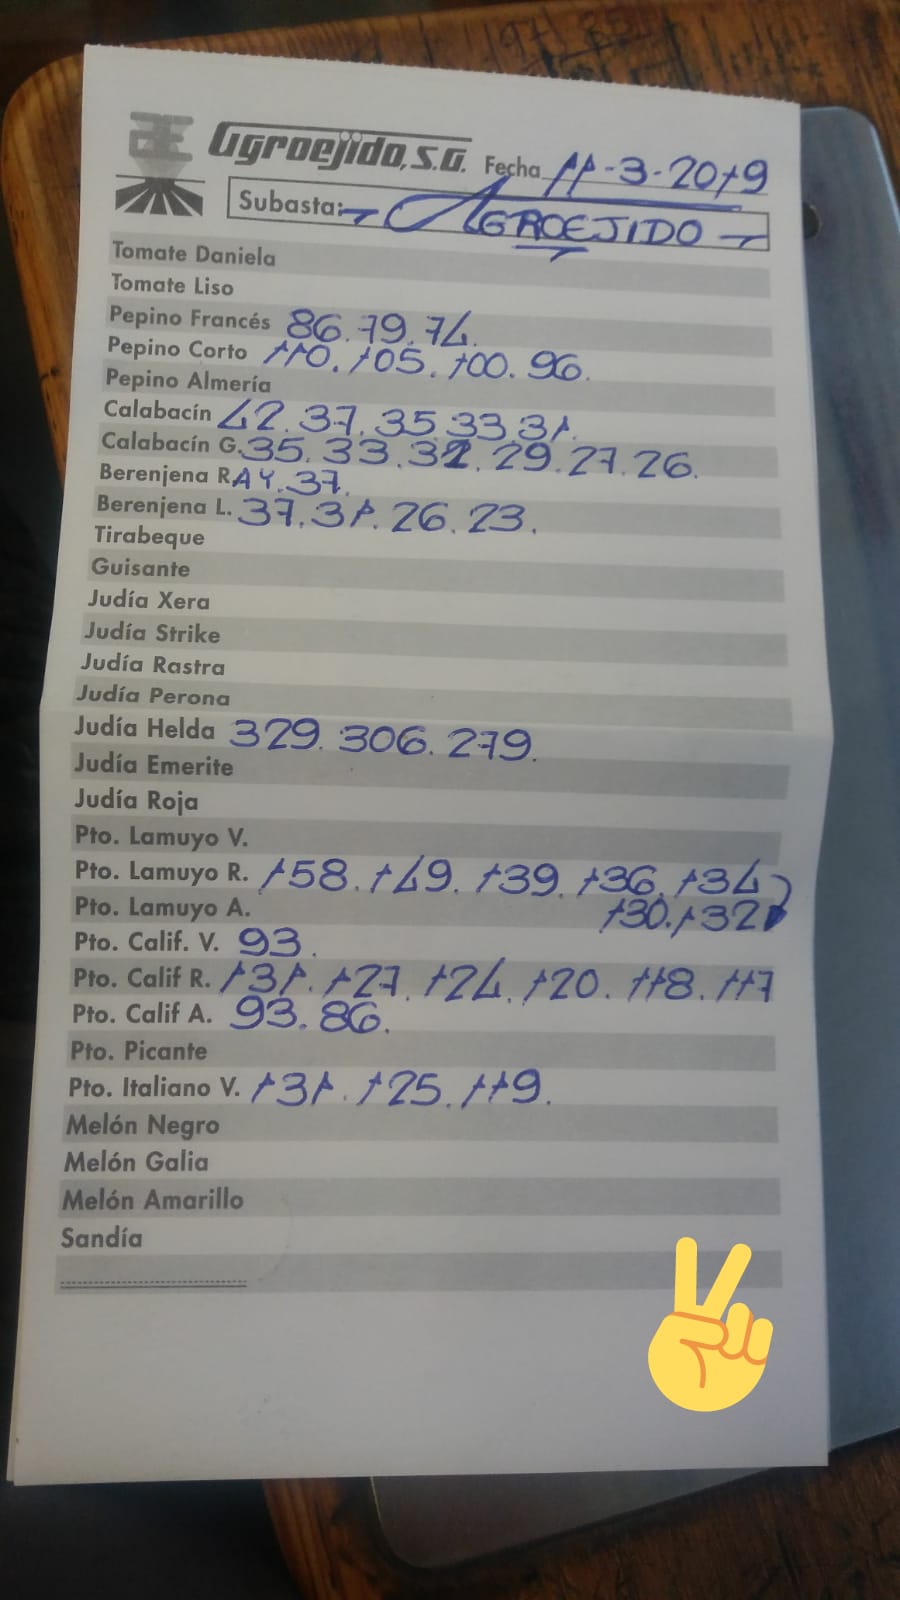 Agroejido, S.G. Fecha 11-3-2019
Subasta: AGROEJIDO
Tomate Daniela
Tomate Liso
Pepino Francés 86.79.74.
Pepino Corto 110.105.100.96.
Pepino Almería
Calabacín 42.37.35.33.31.
Calabacín G. 35.33.32.29.27.26.
Berenjena RAY.37.
Berenjena L. 37.31.26.23.
Tirabeque
Guisante
Judía Xera
Judía Strike
Judía Rastra
Judía Perona
Judía Helda 329.306.279.
Judía Emerite
Judía Roja
Pto. Lamuyo V.
Pto. Lamuyo R. 158.149.139.136.134
Pto. Lamuyo A. 130.132
Pto. Calif. V. 93.
Pto. Calif R. 131.127.124.120.118.117
Pto. Calif A. 93.86.
Pto. Picante
Pto. Italiano V. 131.125.119.
Melón Negro
Melón Galia
Melón Amarillo
Sandía